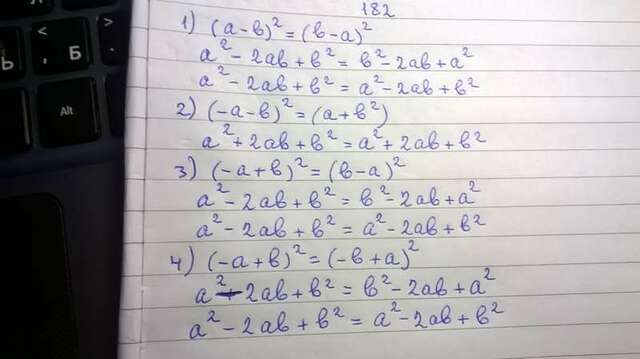 182
1) (a-b)² = (b-a)²
a² - 2ab + b² = b² - 2ab + a²
a² - 2ab + b² = a² - 2ab + b²
2) (-a-b)² = (a+b²)
a² + 2ab + b² = a² + 2ab + b²
3) (-a+b)² = (b-a)²
a² - 2ab + b² = b² - 2ab + a²
a² - 2ab + b² = a² - 2ab + b²
4) (-a+b)² = (-b+a)²
a² - 2ab + b² = b² - 2ab + a²
a² - 2ab + b² = a² - 2ab + b²
<
,
Б
Ь
Alt